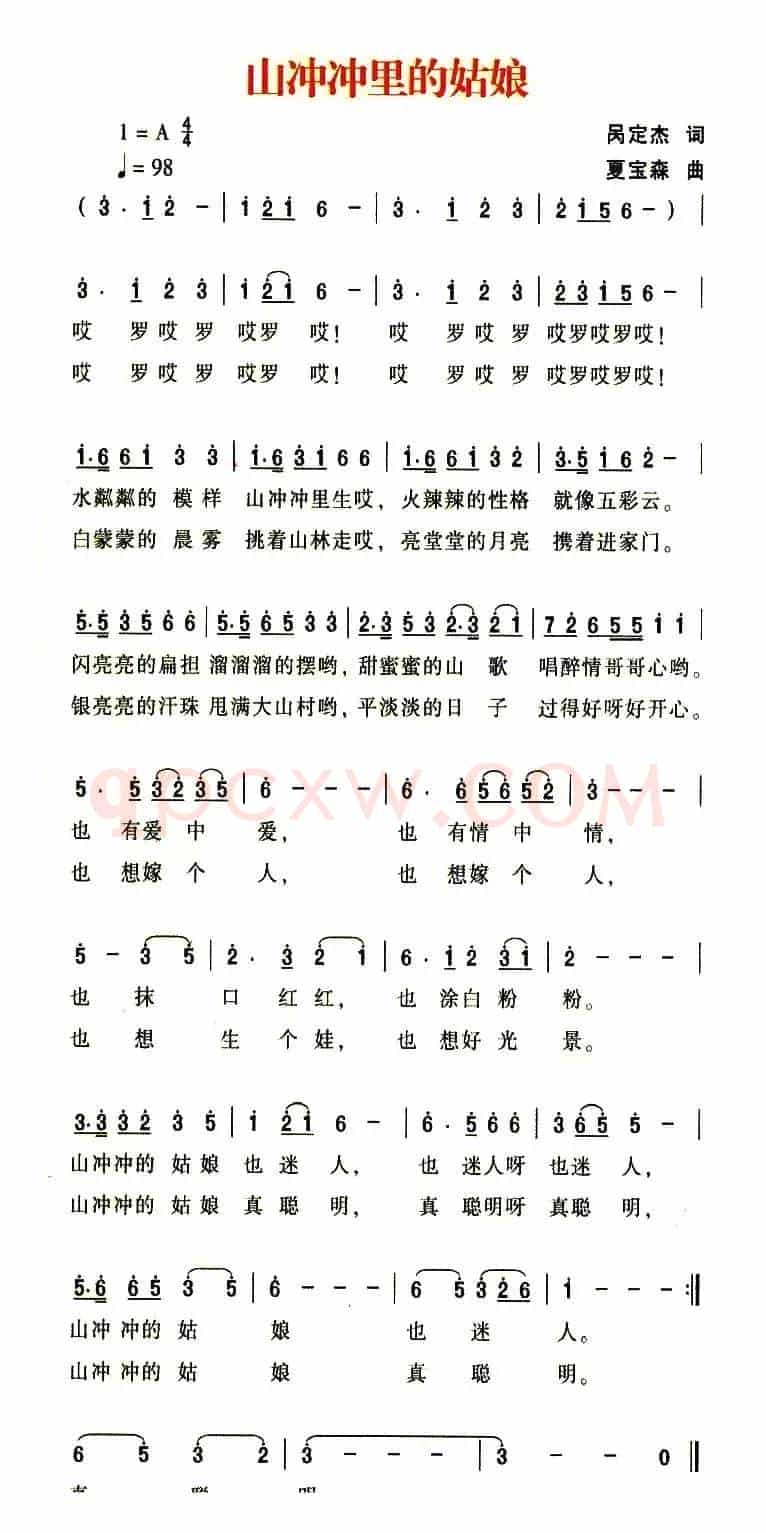 山冲冲里的姑娘
1 = A 4/4
♩= 98
吴定杰 词
夏宝森 曲
( 3̇ . 1̇ 2̇ – | 1̇ 2̇ 1̇ 6 – | 3̇ . 1̇ 2̇ 3̇ | 2̇ 1̇ 5 6 – ) |
3̇ . 1̇ 2̇ 3̇ | 1̇ 2̇ 1̇ 6 – | 3̇ . 1̇ 2̇ 3̇ | 2̇ 3̇ 1̇ 5 6 – |
哎 罗 哎 罗 哎罗 哎! 哎 罗 哎 罗 哎罗哎罗哎!
哎 罗 哎 罗 哎罗 哎! 哎 罗 哎 罗 哎罗哎罗哎!
1̇ . 6 6 1̇ 3̇ 3̇ | 1̇ . 6 3̇ 1̇ 6 6 | 1̇ . 6 6 1̇ 3̇ 2̇ | 3̇ . 5̇ 1̇ 6 2̇ – |
水粼粼的 模样 山冲冲里生哎, 火辣辣的性格 就像五彩云。
白蒙蒙的 晨雾 挑着山林走哎, 亮堂堂的月亮 携着进家门。
5̇ . 5̇ 3̇ 5̇ 6̇ 6̇ | 5̇ . 5̇ 6̇ 5̇ 3̇ 3̇ | 2̇ . 3̇ 5̇ 3̇ 2̇ . 3̇ 2̇ 1̇ | 7 2̇ 6 5 5 1̇ 1̇ |
闪亮亮的扁担 溜溜溜的摆哟, 甜蜜蜜的山 歌 唱醉情哥哥心哟。
银亮亮的汗珠 甩满大山村哟, 平淡淡的日 子 过得好呀好开心。
5̇ . 5̇ 3̇ 2̇ 3̇ 5̇ | 6̇ – – – | 6̇ . 6̇ 5̇ 6̇ 5̇ 2̇ | 3̇ – – – |
qpcxw.COM
也 有爱 中 爱, 也 有情 中 情,
也 想嫁 个 人, 也 想嫁 个 人,
5̇ – 3̇ 5̇ | 2̇ . 3̇ 2̇ 1̇ | 6 . 1̇ 2̇ 3̇ 1̇ | 2̇ – – – |
也 抹 口 红 红, 也 涂白 粉 粉。
也 想 生 个 娃, 也 想好 光 景。
3̇ . 3̇ 3̇ 2̇ 3̇ 5̇ | 1̇ 2̇ 1̇ 6 – | 6̇ . 5̇ 6̇ 6̇ | 3̇ 6̇ 5̇ 5̇ – |
山冲冲的 姑 娘 也 迷 人, 也 迷人呀 也迷 人,
山冲冲的 姑 娘 真 聪 明, 真 聪明呀 真聪 明,
5̇ . 6̇ 6̇ 5̇ 3̇ 5̇ | 6̇ – – – | 6̇ 5̇ 3̇ 2̇ 6 | 1̇ – – – :‖
山冲 冲的 姑 娘 也 迷 人。
山冲 冲的 姑 娘 真 聪 明。
6̇ 5̇ 3̇ 2̇ | 3̇ – – – | 3̇ – – 0 ‖